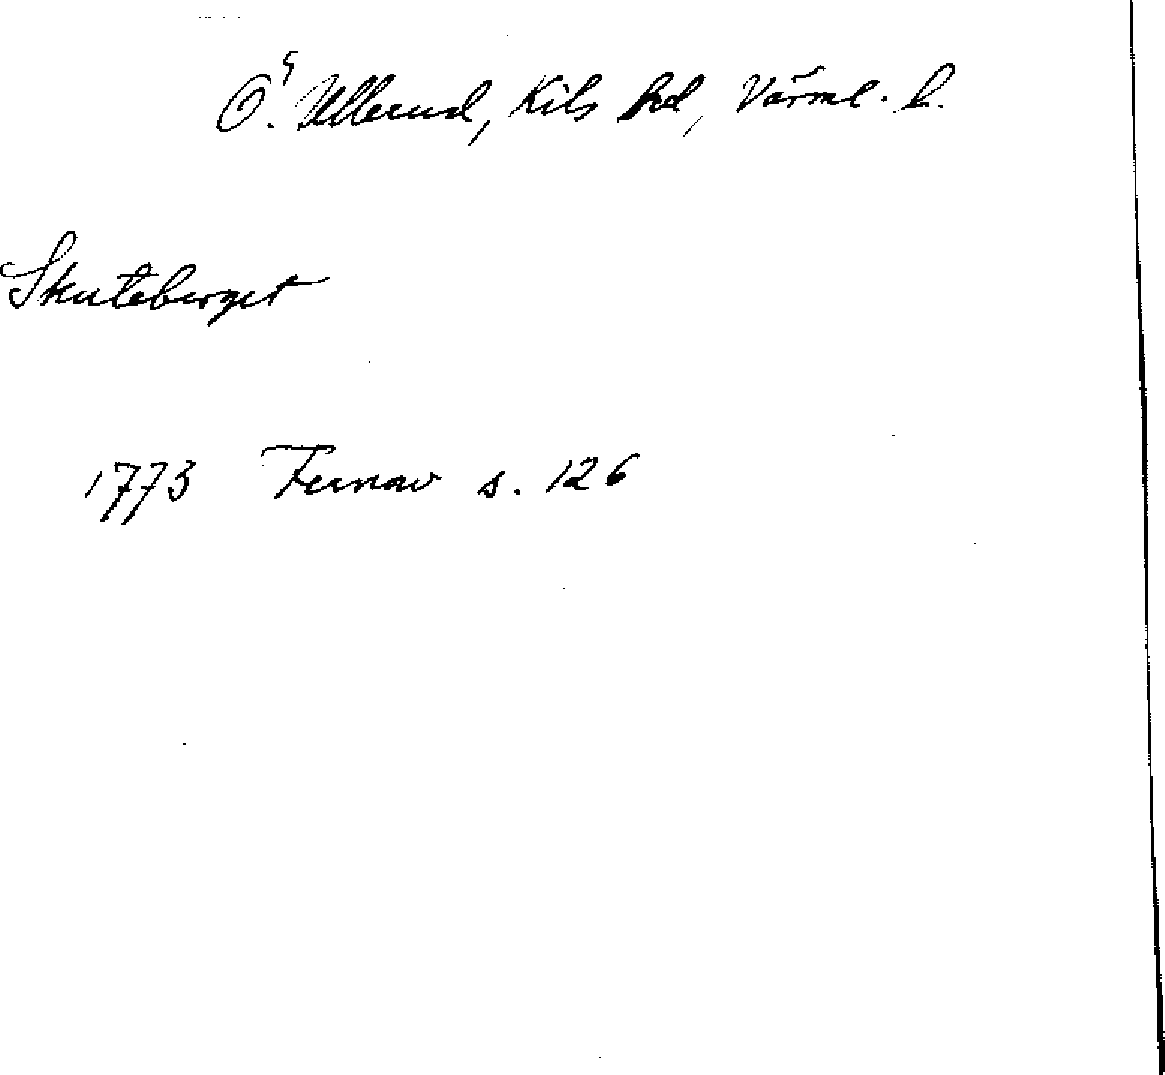 Ö. Ullerud, Kils hd, Värml. l.
Skuteberget
1773 Fernow s. 126